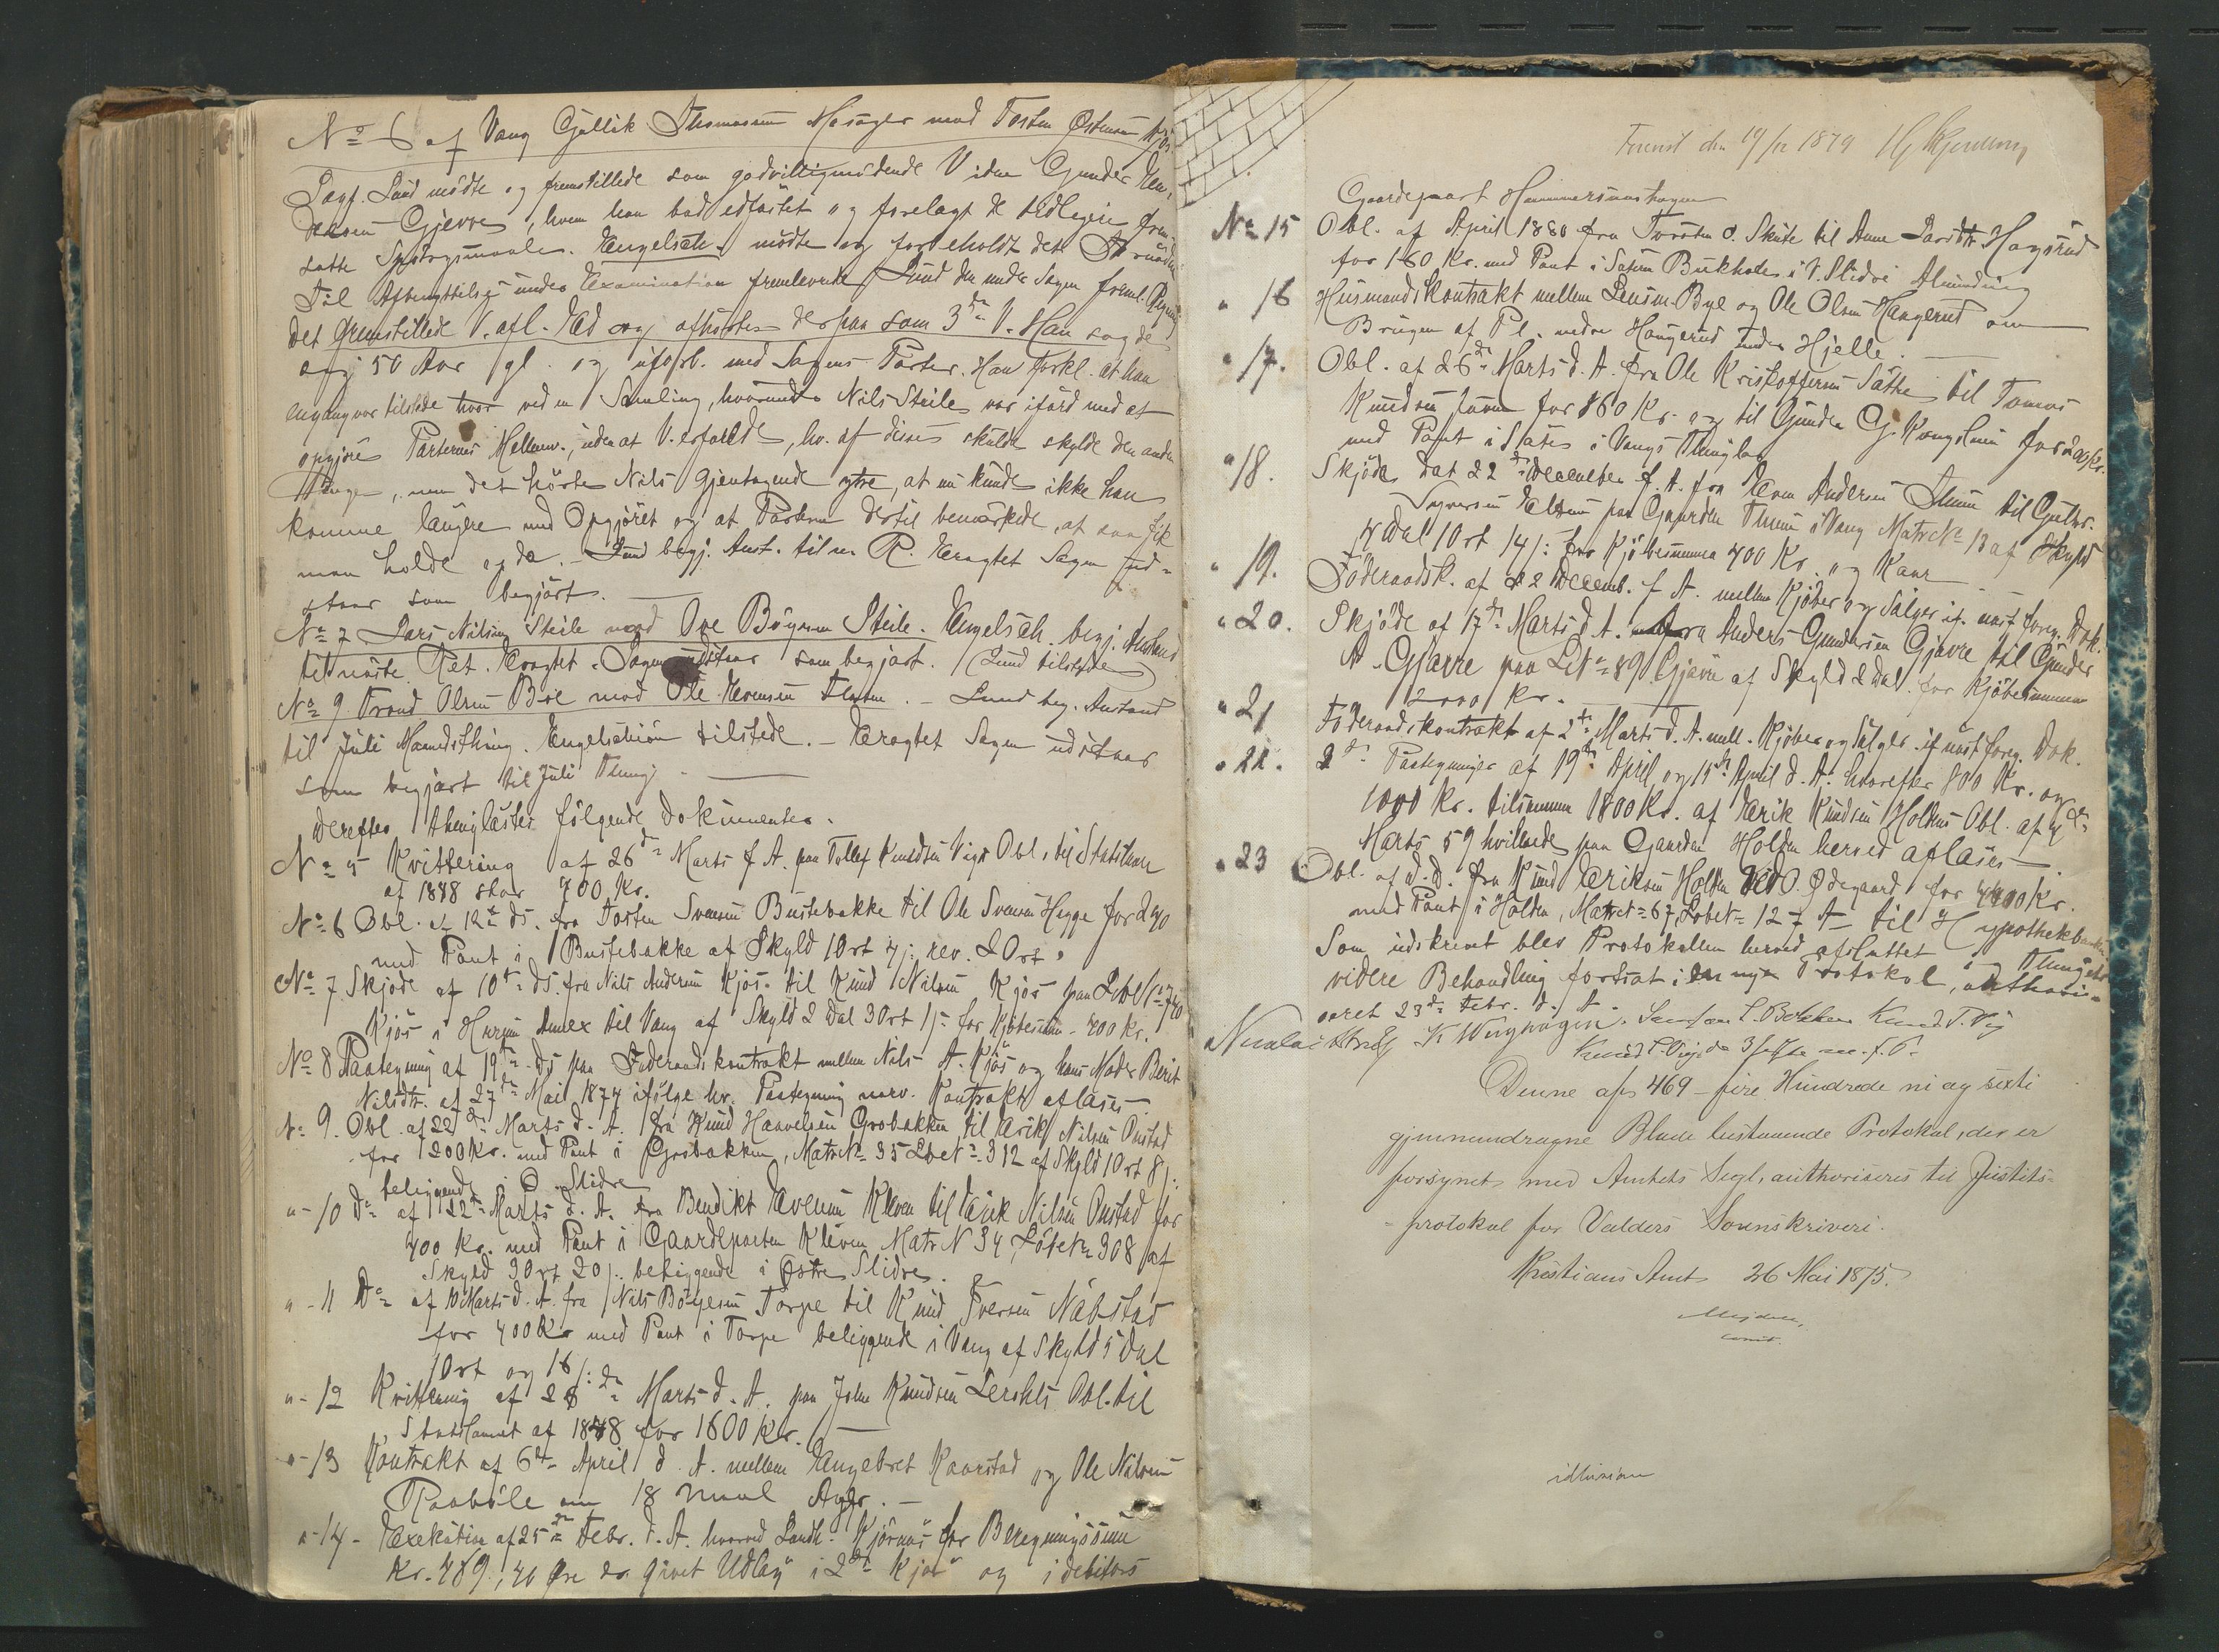 No 6 af Vang Gullik Thomasen Mosager mod Tosten Østensen Kjös.
Sagf. Lund mödte og fremstillede som godvilligmödende Vidne Gunder
Gjevre, hvem han bad edfästet og forelagt de vedlagte frem
satte Spörgsmaale. Engelsch. mödte og forbeholdt det
Til Afbenyttelse under Examination fremleverte Lund den under Sagen freml. Regning
Det fremstillede V. afl. Ed og afhörtes derpaa som 3de V. Han sagde
sig 50 Aar gl. og uforb. med Sagens Parter. Han forkl. at han
engang var tilstede hvor ved en Samling, hvorunder Nils Steile var ifärd med at
opgjöre Parternes Mellemv., uden at V. erfarede, hv. af disse skulde skylde den anden
Penger, men det hörte Nils gjentagende ytre, at nu kunde ikke han
komme längere med Opgjöret og at Parterne dertil bemärkede, at saa fik
man holde op da. - Lund begj. Anst. til n. R. Eragtet Sagen ud=
staar som begjärt.
No 7 Lars Nilsen Steile mod Ove Böyesen Steile. Engelsch. begj. Anstand
til näste Ret. Eragtet. Sagen udstaar som begjärt. (Lund tilstede)
No 9 Trond Olsen Böe mod Ole Evensen - Lund beg. Anstand
til Juli Maanedsthing. Engelschiön tilstede. - Eragtet Sagen udstaar
som begjärt til Juli Thing.
Derefter thinglästes fölgende Dokumenter.
No 5 Kvittering af 26de Marts f. A. paa Tollef Knudsen Vigs Obl. til Statslaan
af 1848 stor 700 Kr.
No 6 Obl. af 12te ds. fra Tosten Svensen Bustebakke til Ole Svensen Hegge for 240
med Pant i Bustebakke af Skyld 1 Ort 4 s: rev. 2 Ort.
No 7 Skjöde af 10de ds. fra Nils Andersen Kjös til Knud Nilsen Kjös paa Löbe No 740
Kjös i Hurum Annex til Vang af Skyld 2 Dal 3 Ort 1 s: for Kjöbesum - 400 Kr.
No 8 Paategning af 19de ds paa Föderaadskontrakt mellem Nils A. Kjös og hans Moder Berit
Nilsdtr. af 27de Mai 1874 ifölge hv. Paategning närv. Kontrakt afläses
No 9. Obl. af 22de Marts d. A. fra Knud Haavelsen Grobakken til Erik Nilsen Onstad
for 1200 Kr. med Pant i Grobakken, Matr No 35 Löbe No 312 af Skyld 1 Ort 8 s:
beliggende i Ö. Slidre
" - 10 Do af 22de Marts d. A. fra Bendikt Evensen Kleven til Erik Nilsen Onstad for
400 Kr. med Pant i Gaardparten Kleven Matr N 34, Löbe No 308 af
Skyld 3 Ort 20 s: beliggende i Östre Slidre.
" - 11 Do af 10 Marts d. A. fra Nils Böyesen Torpe til Knud Iversen Näbstad
for 400 Kr med Pant i Torpe beliggende i Vang af Skyld 5 Dal
1 Ort og 16 s:
" - 12 Kvittering af 28de Marts d. A. paa John Knudsen Lerohls Obl. til
Statslaanet af 1848 for 1600 Kr.
" - 13 Kontrakt af 6te April d. A. mellem Engebret Kaarstad og Ole Nilsen
om 18 Maal Ager.
" - 14 - Exekution af 25de Febr. d. A. hvorved Landh. for Beregningssum
Kr. 489, 40 Øre er givet Udläg i 2de og i debitors
Foreviist den 19/12 1879
Gaardepart Hammersmoshagen
No 15 Obl. af April 1880 fra Torsten O. Skute til Anne Larsdtr Hagsrud
for 160 Kr. med Pant i Säteren Bukholen i V. Slidre Alminding
" 16 Husmandskontrakt mellem Lensm. Bye og Ole Olsen Haugerud om
Brugen af Pl. nedre Haugerud under Hjelle
" 17. Obl. af 26de Marts d. A. fra Ole Kristoffersen Säthe til Tomas
Knudsen for 860 Kr. og til Gunder G. Kongslien for 200 Kr.
med Pant i Säte i Vangs Thinglag
" 18. Skjöde dat 22de December f. A. fra Even Andersen Thune til Guttor.
paa Gaarden Thune i Vang Matr No 13 af Skyld
4 Dal 1 Ort 14 s: for Kjöbesummen 400 Kr. og Kaar
" 19. Föderaadsk. af 22 Decemb. f A. mellem Kjöber og Sälger if. näst foreg. Dok.
" 20. Skjöde af 17de Marts d. A. fra Anders Gundersen Gjävre til Gunder
A. Gjävre paa L No 89 Gjävre af Skyld 2 Dal. for Kjöbesummen
2000 Kr.
" 21 Föderaadskontrakt af 2de Marts d. A. mell. Kjöber og Sälger if näst foreg. Dok.
" 22. 2de Paategninger af 19de April og 15de April d. A. hvorefter 800 Kr. og
1000 Kr. tilsammen 1800 Kr. af Erik Knudsen Holdens Obl. af 4de
Marts 59 hvilende paa Gaarden Holden herved afläses
" 23 Obl. af d. D. fra Knud Eriksen Holden Ödegaard for 4400 Kr.
med Pant i Holden, Matr No 67, Löbe No 127 A til Hypothekbanken
Som udskrevet blev Protokollen herved afsluttet og Thingets
videre Behandling fortsat i den nye Protokol, authori=
seret 23de Febr. d. A.
Knud T. Vig
Denne af 469 - fire Hundrede ni og sexti
gjennemdragne Blade bestaaende Protokol, der er
forsynet med Amtets Segl, authoriseres til Justits=
protokol for Valders Sorenskriveri.
Kristians Amt 26 Mai 1875.